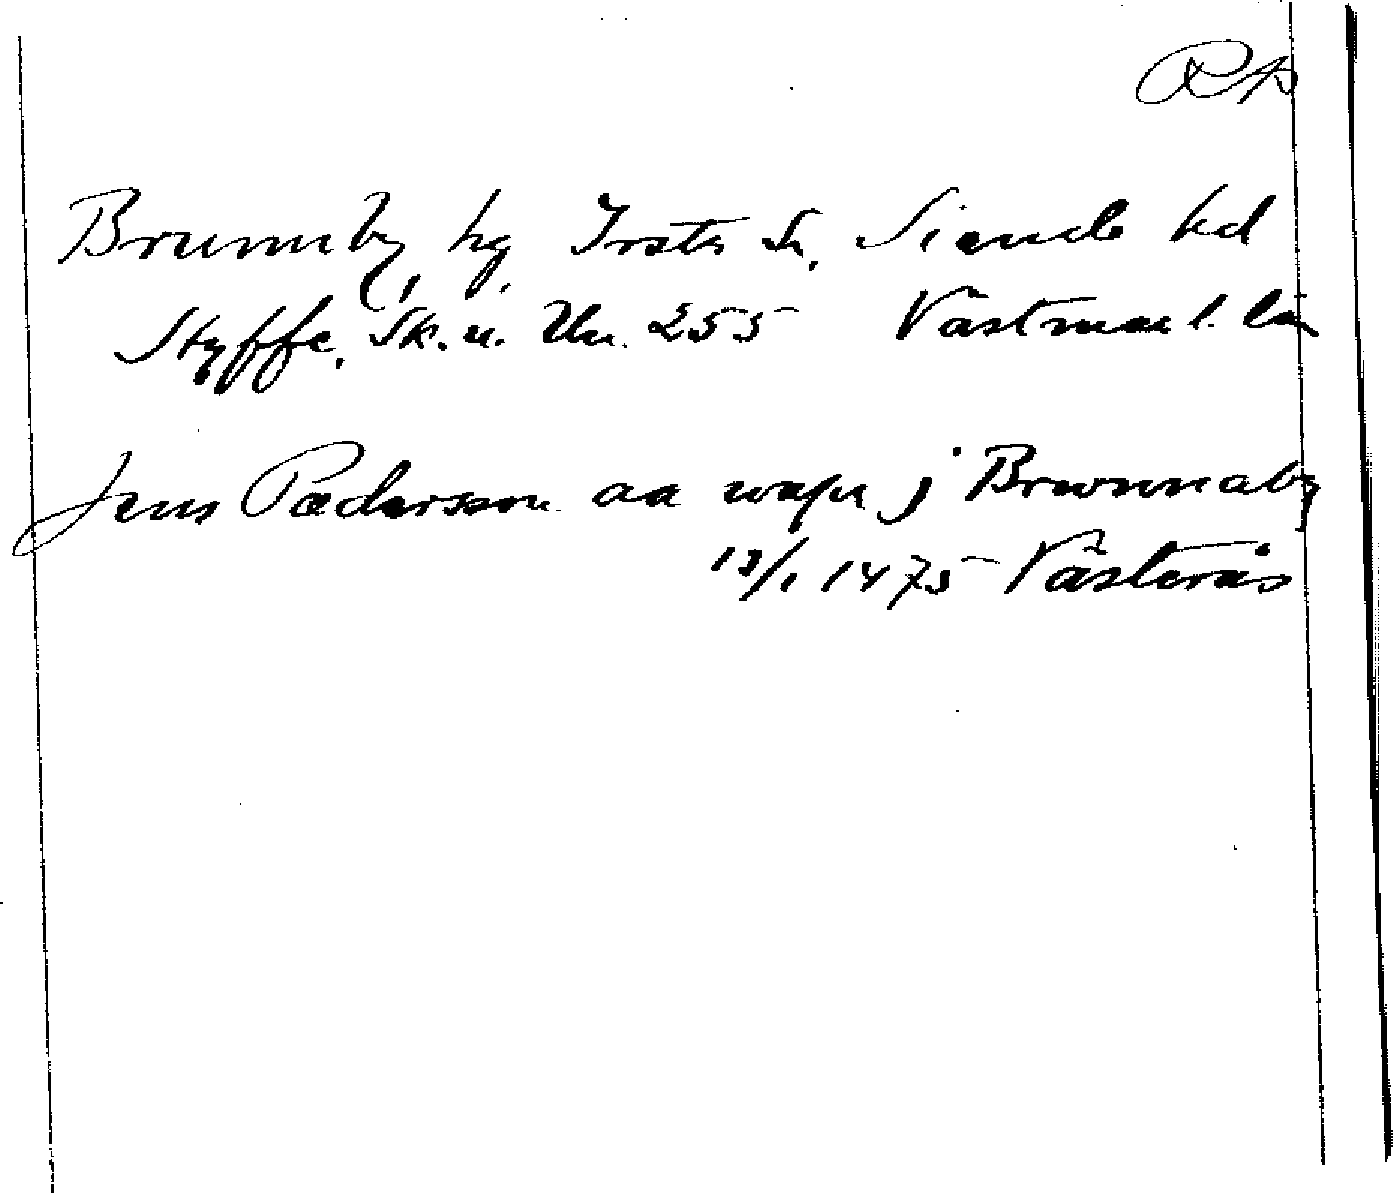 RAp
Brunnby, hg, Irsta sn, Siende hd
Styffe, Sk. u. Un. 255 Västmanl. län
Jens Pædersson aa wapn j Brwnnaby
13/1 1475 Västerås